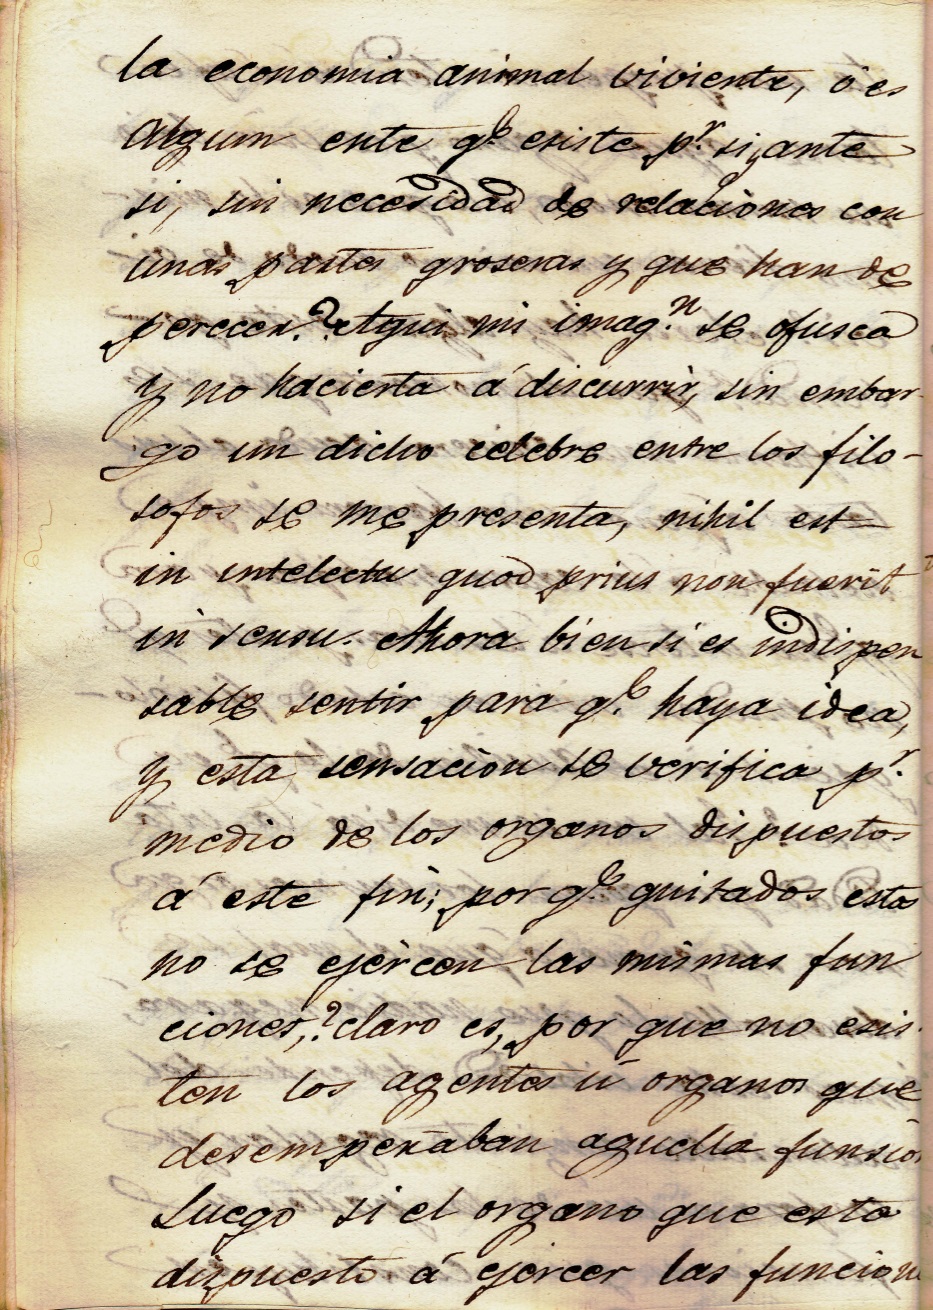 la economia animal viviente, ó es
Algun ente qe. esiste pr. si, ante
si, sin necesidad de relaciònes con
unas partes groseras y que han de
perecer? Aqui mi imagn. se ofusca
y no hacierta á discurrir, sin embar-
go un dicho celebre entre los filo-
sofos se me presenta, nihil est
in intelectu quod prius non fuerit
in sensu. Ahora bien si es indispen
sable sentir para qe. haya idea,
y esta sensaciòn se verifica pr.
medio de los organos dispuestos
á este fin; por qe. quitados estos
no se ejèrcen las mismas fun
ciones,? claro es, por que no esis-
ten los agentes ú organos que
desempeñaban aquella funsio
Luego si el organo que esta
dizpuesto á ejercer las funcion